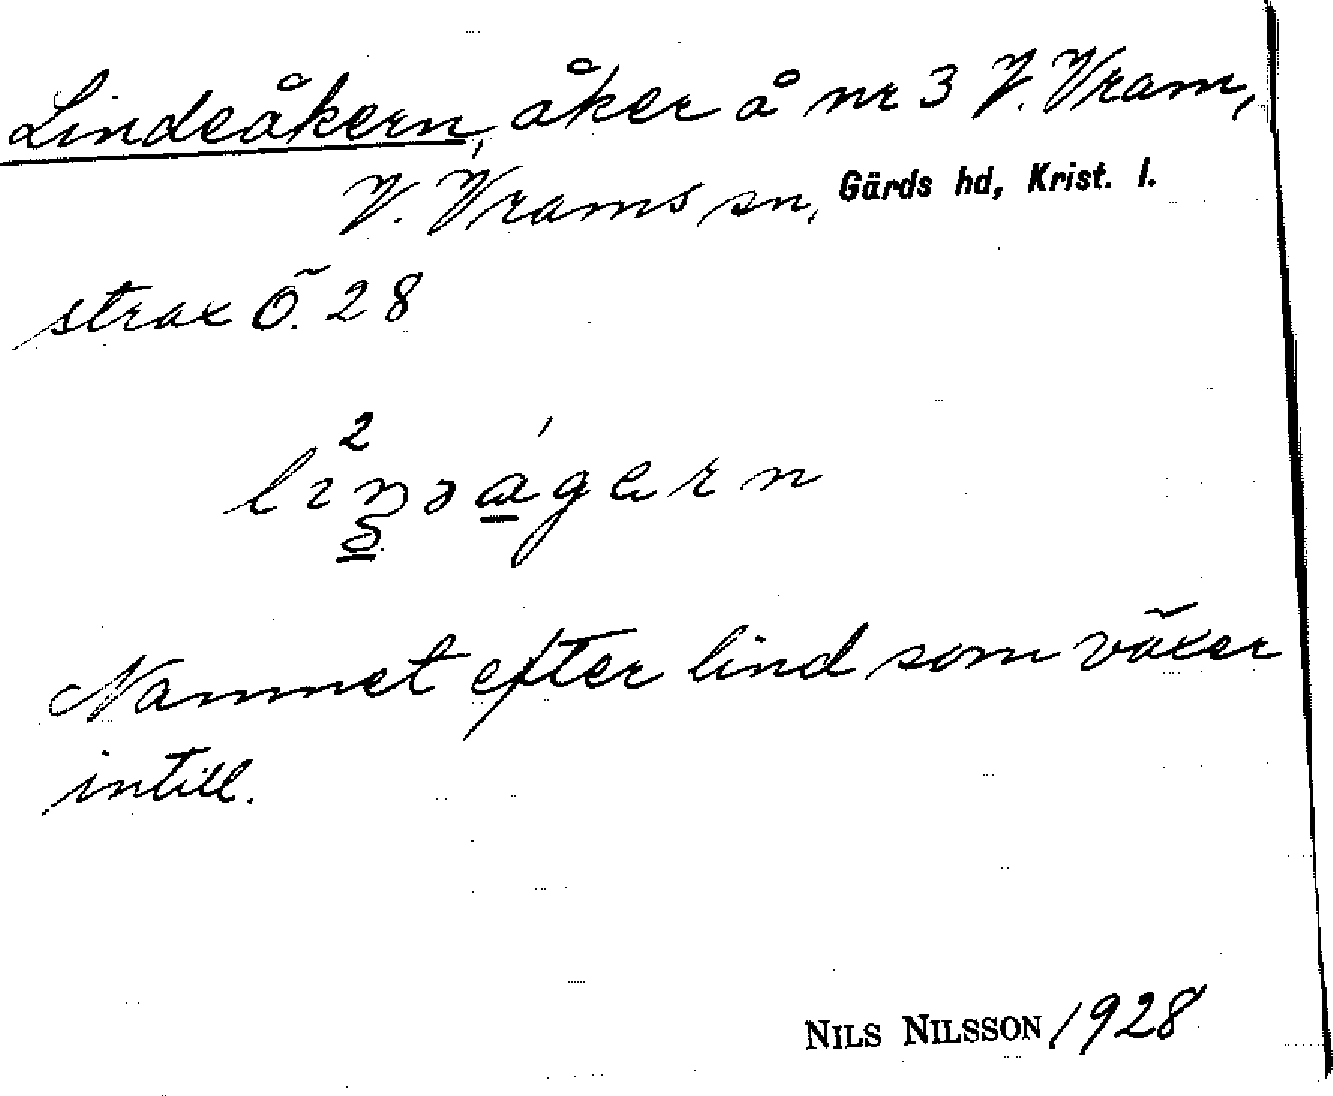 Lindeåkern, åker å nr 3 V. Vram,
V. Vrams sn, Gärds hd, Krist. l.
strax Ö. 28
Namnet efter lind som växer
intill.
NILS NILSSON 1928